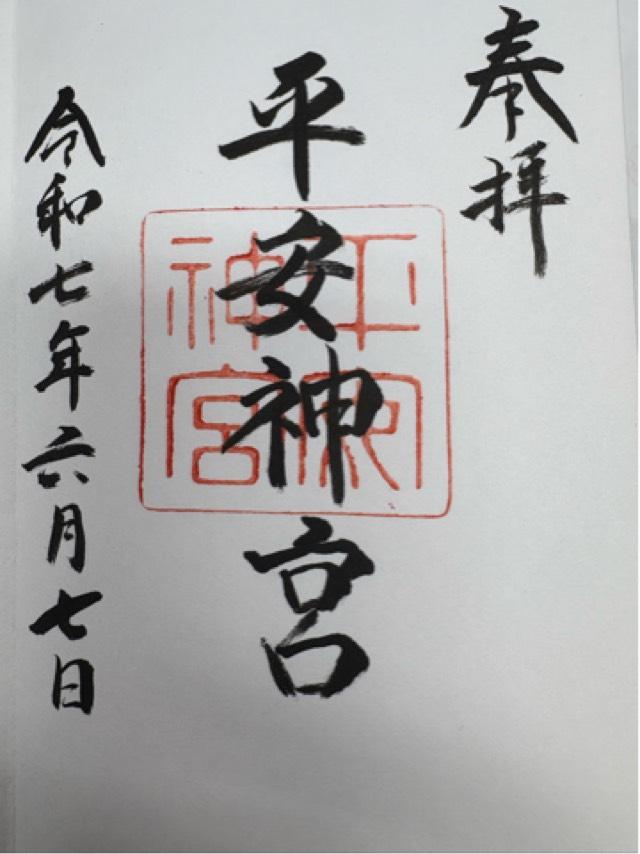 奉拝
平安神宮
令和七年六月七日
平安神宮